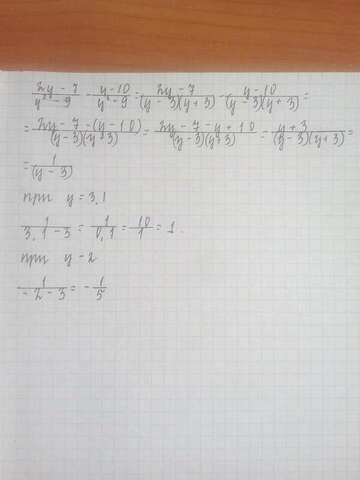 (2y - 7)/(y² - 9) - (y - 10)/(y² - 9) = (2y - 7)/((y - 3)(y + 3)) - (y - 10)/((y - 3)(y + 3)) =
= (2y - 7 - (y - 10))/((y - 3)(y + 3)) = (2y - 7 - y + 10)/((y - 3)(y + 3)) = (y + 3)/((y - 3)(y + 3)) =
= 1/(y - 3)
при y = 3,1
1/(3,1 - 3) = 1/0,1 = 10/1 = 1.
при y - 2
1/(-2 - 3) = - 1/5